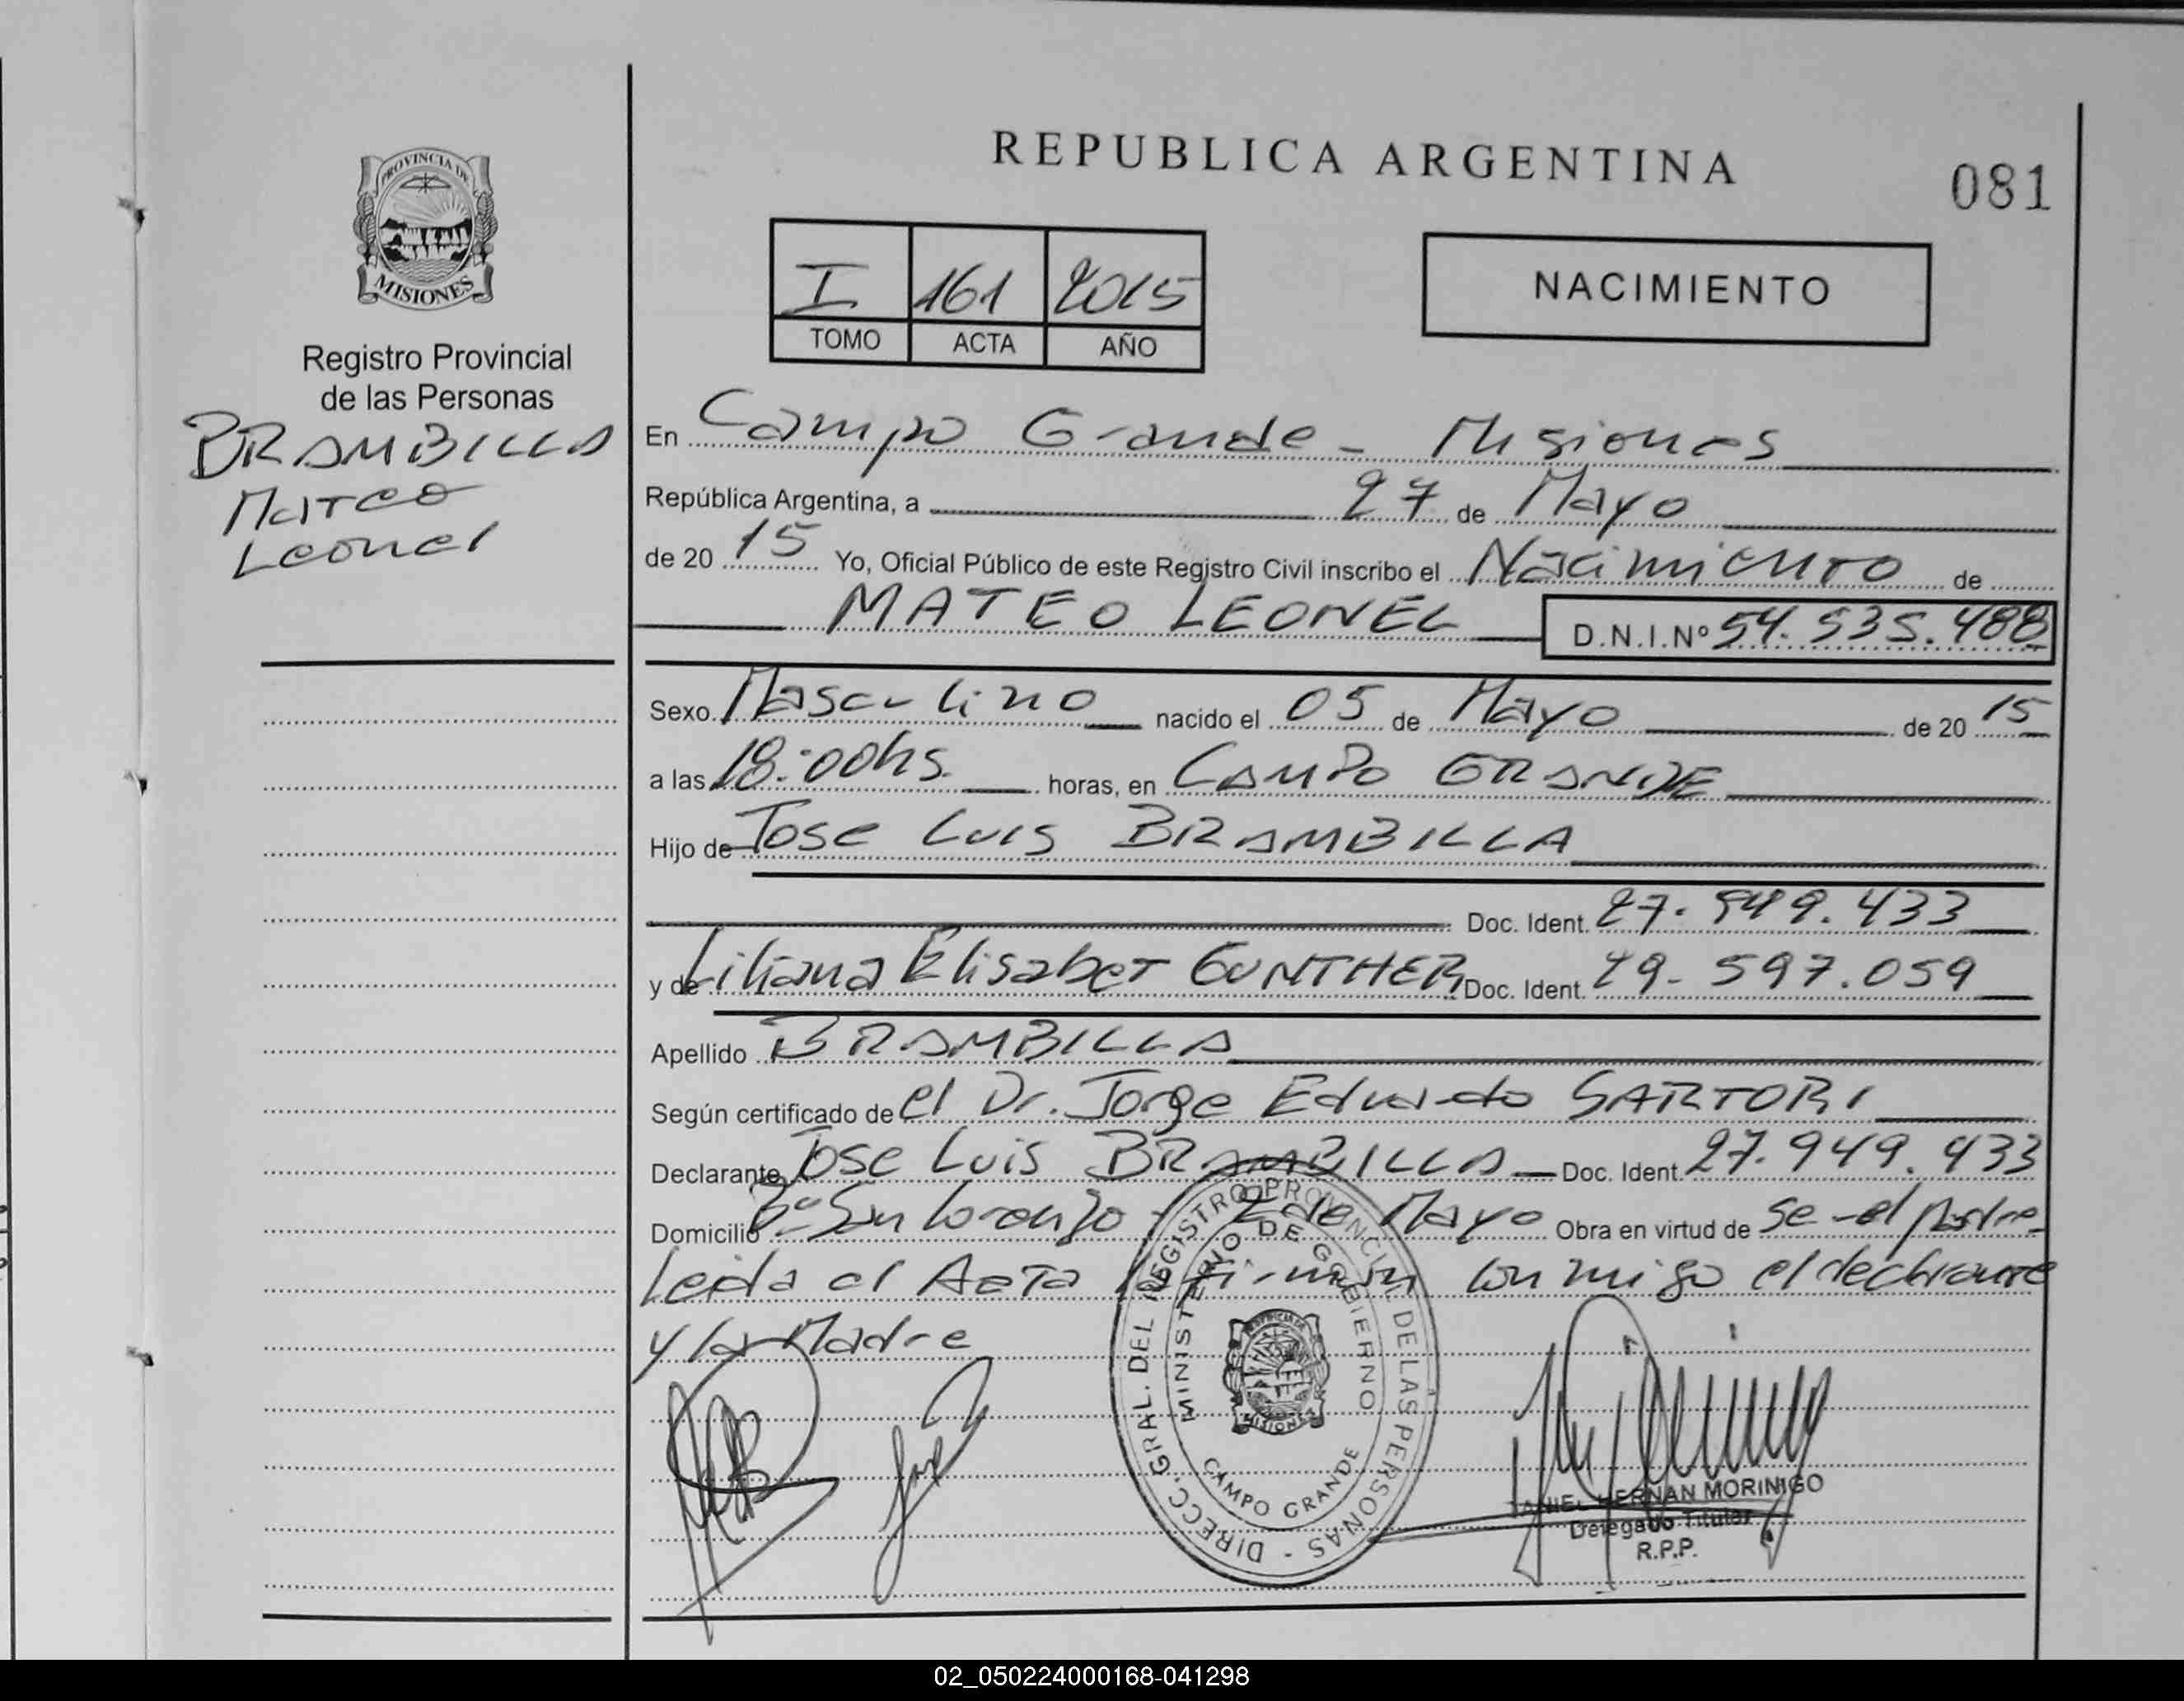 PROVINCIA DE
MISIONES
Registro Provincial
de las Personas
BRAMBILLA
Mateo
Leonel
REPUBLICA ARGENTINA
081
I 161 2015
TOMO ACTA AÑO
NACIMIENTO
En Campo Grande - Misiones
República Argentina, a 27 de Mayo
de 20 15 Yo, Oficial Público de este Registro Civil inscribo el Nacimiento de
MATEO LEONEL D.N.I.Nº 54.535.488
Sexo Masculino nacido el 05 de Mayo de 20 15
a las 18:00hs. horas, en CAMPO GRANDE
Hijo de Jose Luis BRAMBILLA
Doc. Ident. 27.949.433
y de Liliana Elisabet GUNTHER Doc. Ident. 29.597.059
Apellido BRAMBILLA
Según certificado de el Dr. Jorge Eduardo SARTORI
Declarante Jose Luis BRAMBILLA Doc. Ident. 27.949.433
Domicilio Bº San Lorenzo - 2 de Mayo Obra en virtud de Se el padre
Leida el Acta la firman conmigo el declarante
y la Madre
DIRECC. GRAL. DEL REGISTRO PROVINCIAL DE LAS PERSONAS -
MINISTERIO DE GOBIERNO
MISIONES
CAMPO GRANDE
DANIEL HERNAN MORINIGO
Delegado Titular
R.P.P.
02_050224000168-041298